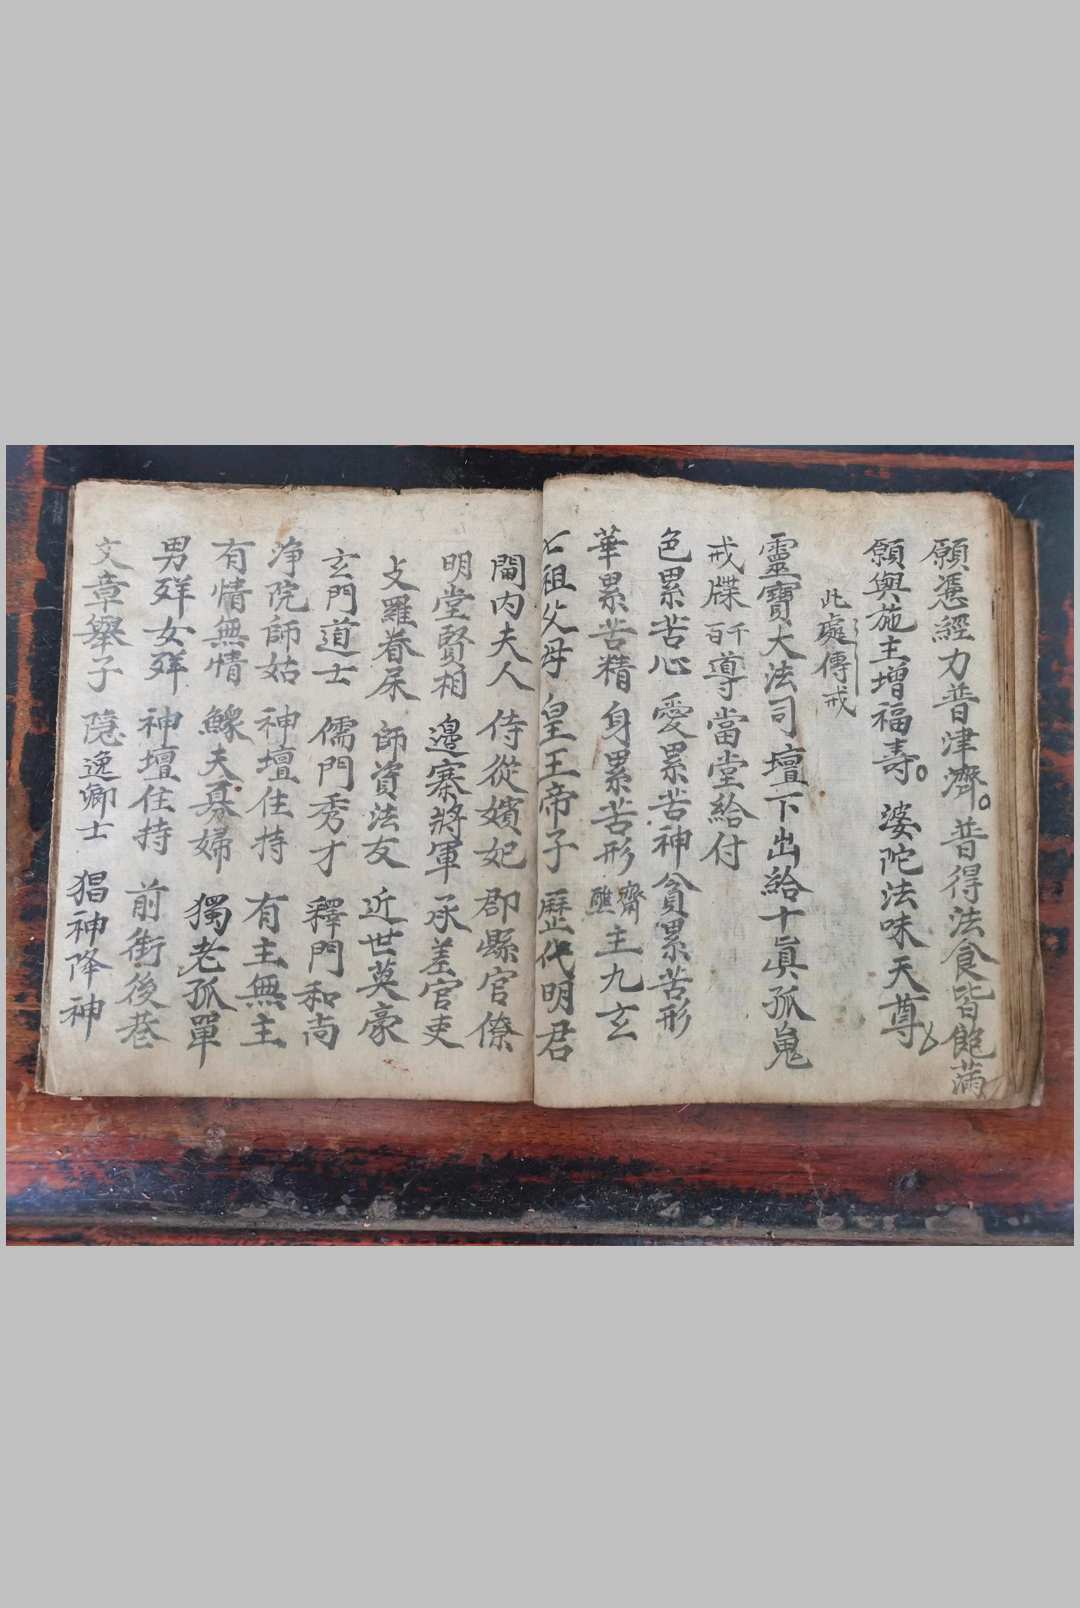 願憑經力普津濟。普得法食皆飽滿
願與施主增福壽。婆陀法味天尊
此處傳戒
靈寶大法司壇下出給十眞孤魂
戒牒千百導當堂給付
色累苦心 愛累苦神貪累苦形
華累苦精 身累苦形齋醮主九玄
七祖父母 皇王帝子 歷代明君
閫内夫人 侍從嬪妃 郡縣官僚
明堂賢相 邊寨將軍 承差官吏
支羅眷屎 師資法友 近世英豪
玄門道士 儒門秀才 釋門和尚
淨院師姑 神壇住持 有主無主
有情無情 鰥夫寡婦 獨老孤單
男殍女殍 神壇住持 前街後巷
文章舉子 隱逸卿士 猖神降神